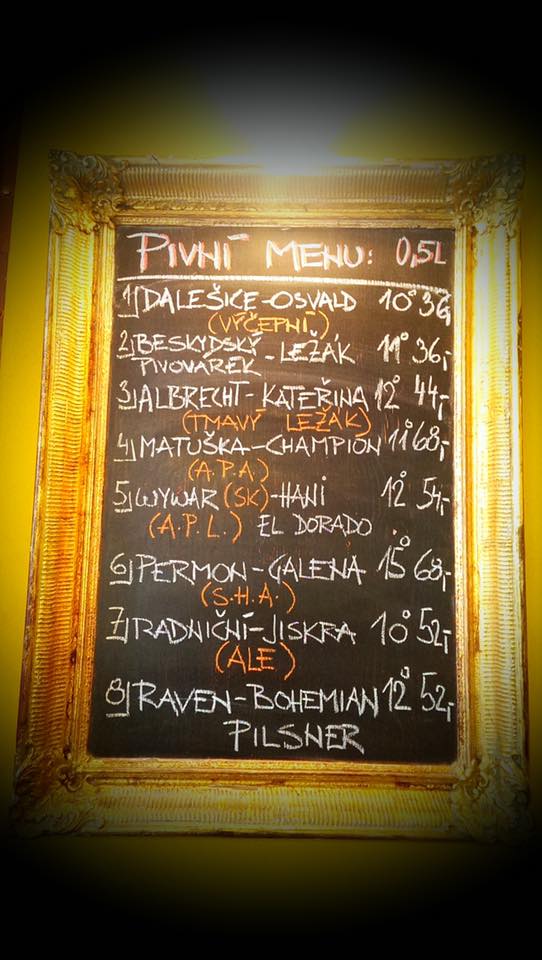 PIVNÍ MENU: 0,5L
1) DALEŠICE-OSVALD 10° 36,-
(VÝČEPNÍ)
2) BESKYDSKÝ PIVOVÁREK - LEŽÁK 11° 36,-
3) ALBRECHT-KATEŘINA 12° 44,-
(TMAVÝ LEŽÁK)
4) MATUŠKA-CHAMPION 11° 68,-
(A.P.A)
5) WYWAR (SK)-HANI 12° 54,-
(A.P.L.) EL DORADO
6) PERMON-GALENA 15° 68,-
(S.H.A.)
7) RADNIČNÍ-JISKRA 10° 52,-
(ALE)
8) RAVEN-BOHEMIAN 12° 52,-
PILSNER